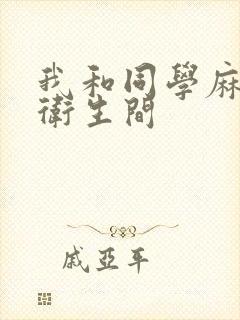 我和同學麻
衛生間
戚亞平